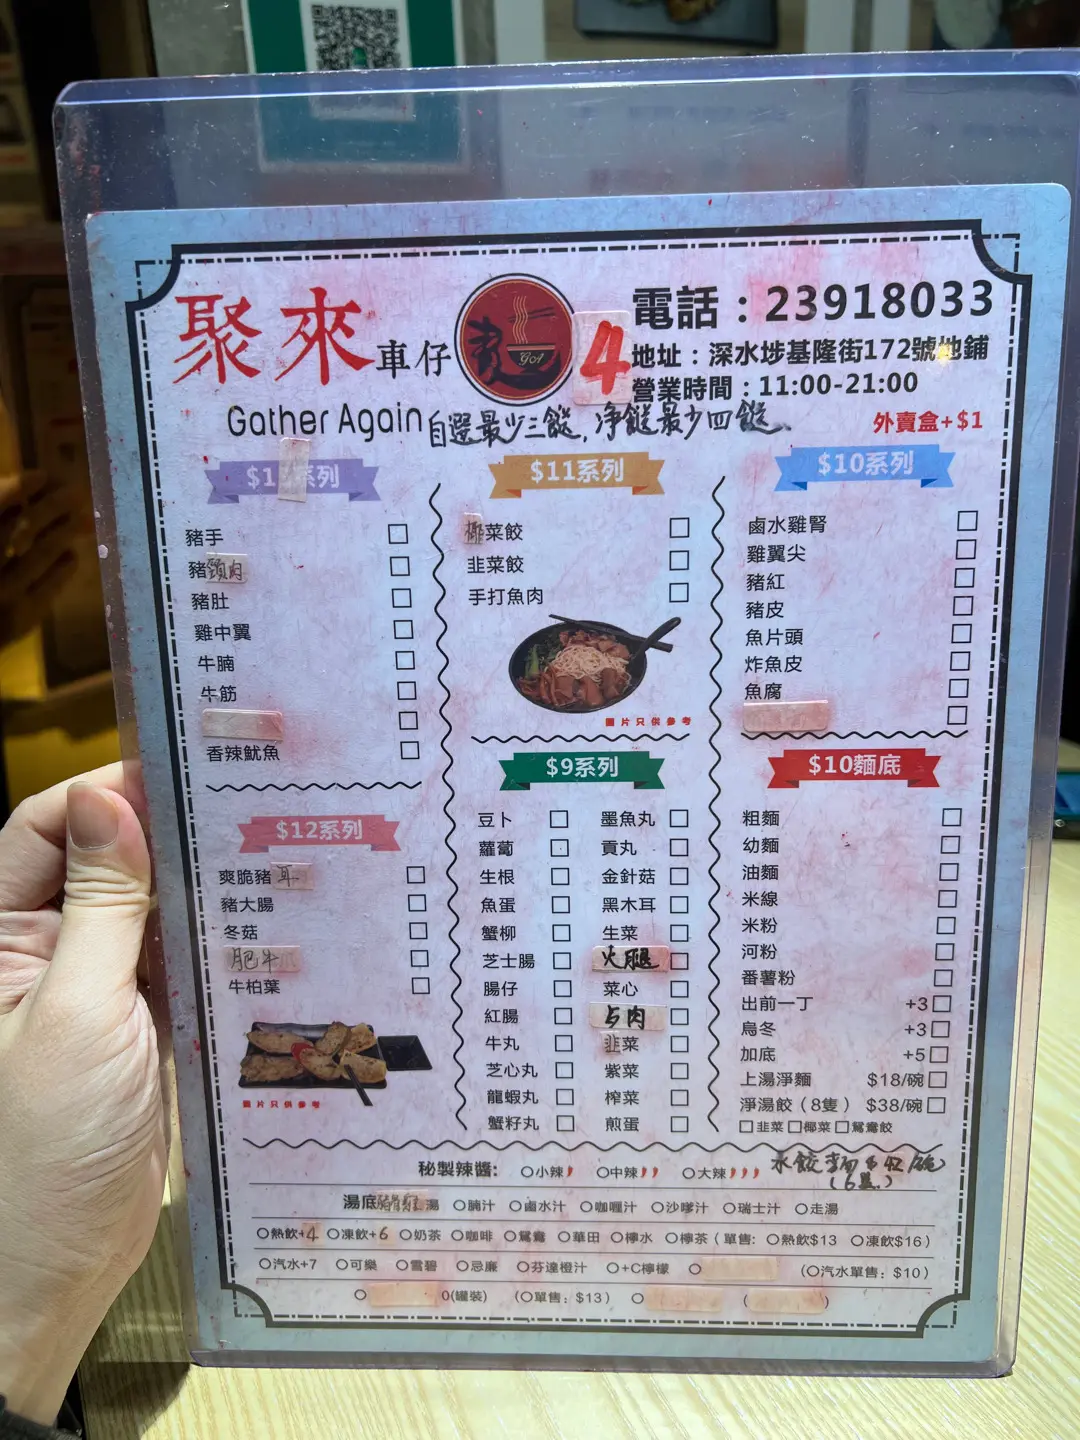 聚來車仔麵
GA
4
電話：23918033
地址：深水埗基隆街172號地鋪
營業時間：11:00-21:00
Gather Again
自選最少三餸，淨餸最少四餸、
外賣盒+$1
系列
豬手
豬頸肉
豬肚
雞中翼
牛腩
牛筋
香辣魷魚
$12系列
爽脆豬耳
豬大腸
冬菇
肥牛
牛柏葉
圖片只供參考
$11系列
椰菜餃
韭菜餃
手打魚肉
圖片只供參考
$9系列
豆卜
蘿蔔
生根
魚蛋
蟹柳
芝士腸
腸仔
紅腸
牛丸
芝心丸
龍蝦丸
蟹籽丸
墨魚丸
貢丸
金針菇
黑木耳
生菜
火腿
菜心
占肉
韭菜
紫菜
榨菜
煎蛋
$10系列
鹵水雞腎
雞翼尖
豬紅
豬皮
魚片頭
炸魚皮
魚腐
$10麵底
粗麵
幼麵
油麵
米線
米粉
河粉
番薯粉
出前一丁 +3
烏冬 +3
加底 +5
上湯淨麵 $18/碗
淨湯餃（8隻） $38/碗
韭菜 椰菜 鴛鴦餃
秘製辣醬： 小辣 中辣 大辣
水餃麵$42/碗
湯底 湯 腩汁 鹵水汁 咖喱汁 沙嗲汁 瑞士汁 走湯
熱飲+4 凍飲+6 奶茶 咖啡 鴛鴦 華田 檸水 檸茶（單售: 熱飲$13 凍飲$16）
汽水+7 可樂 雪碧 忌廉 芬達橙汁 +C檸檬 （汽水單售：$10）
0(罐装) （單售：$13）